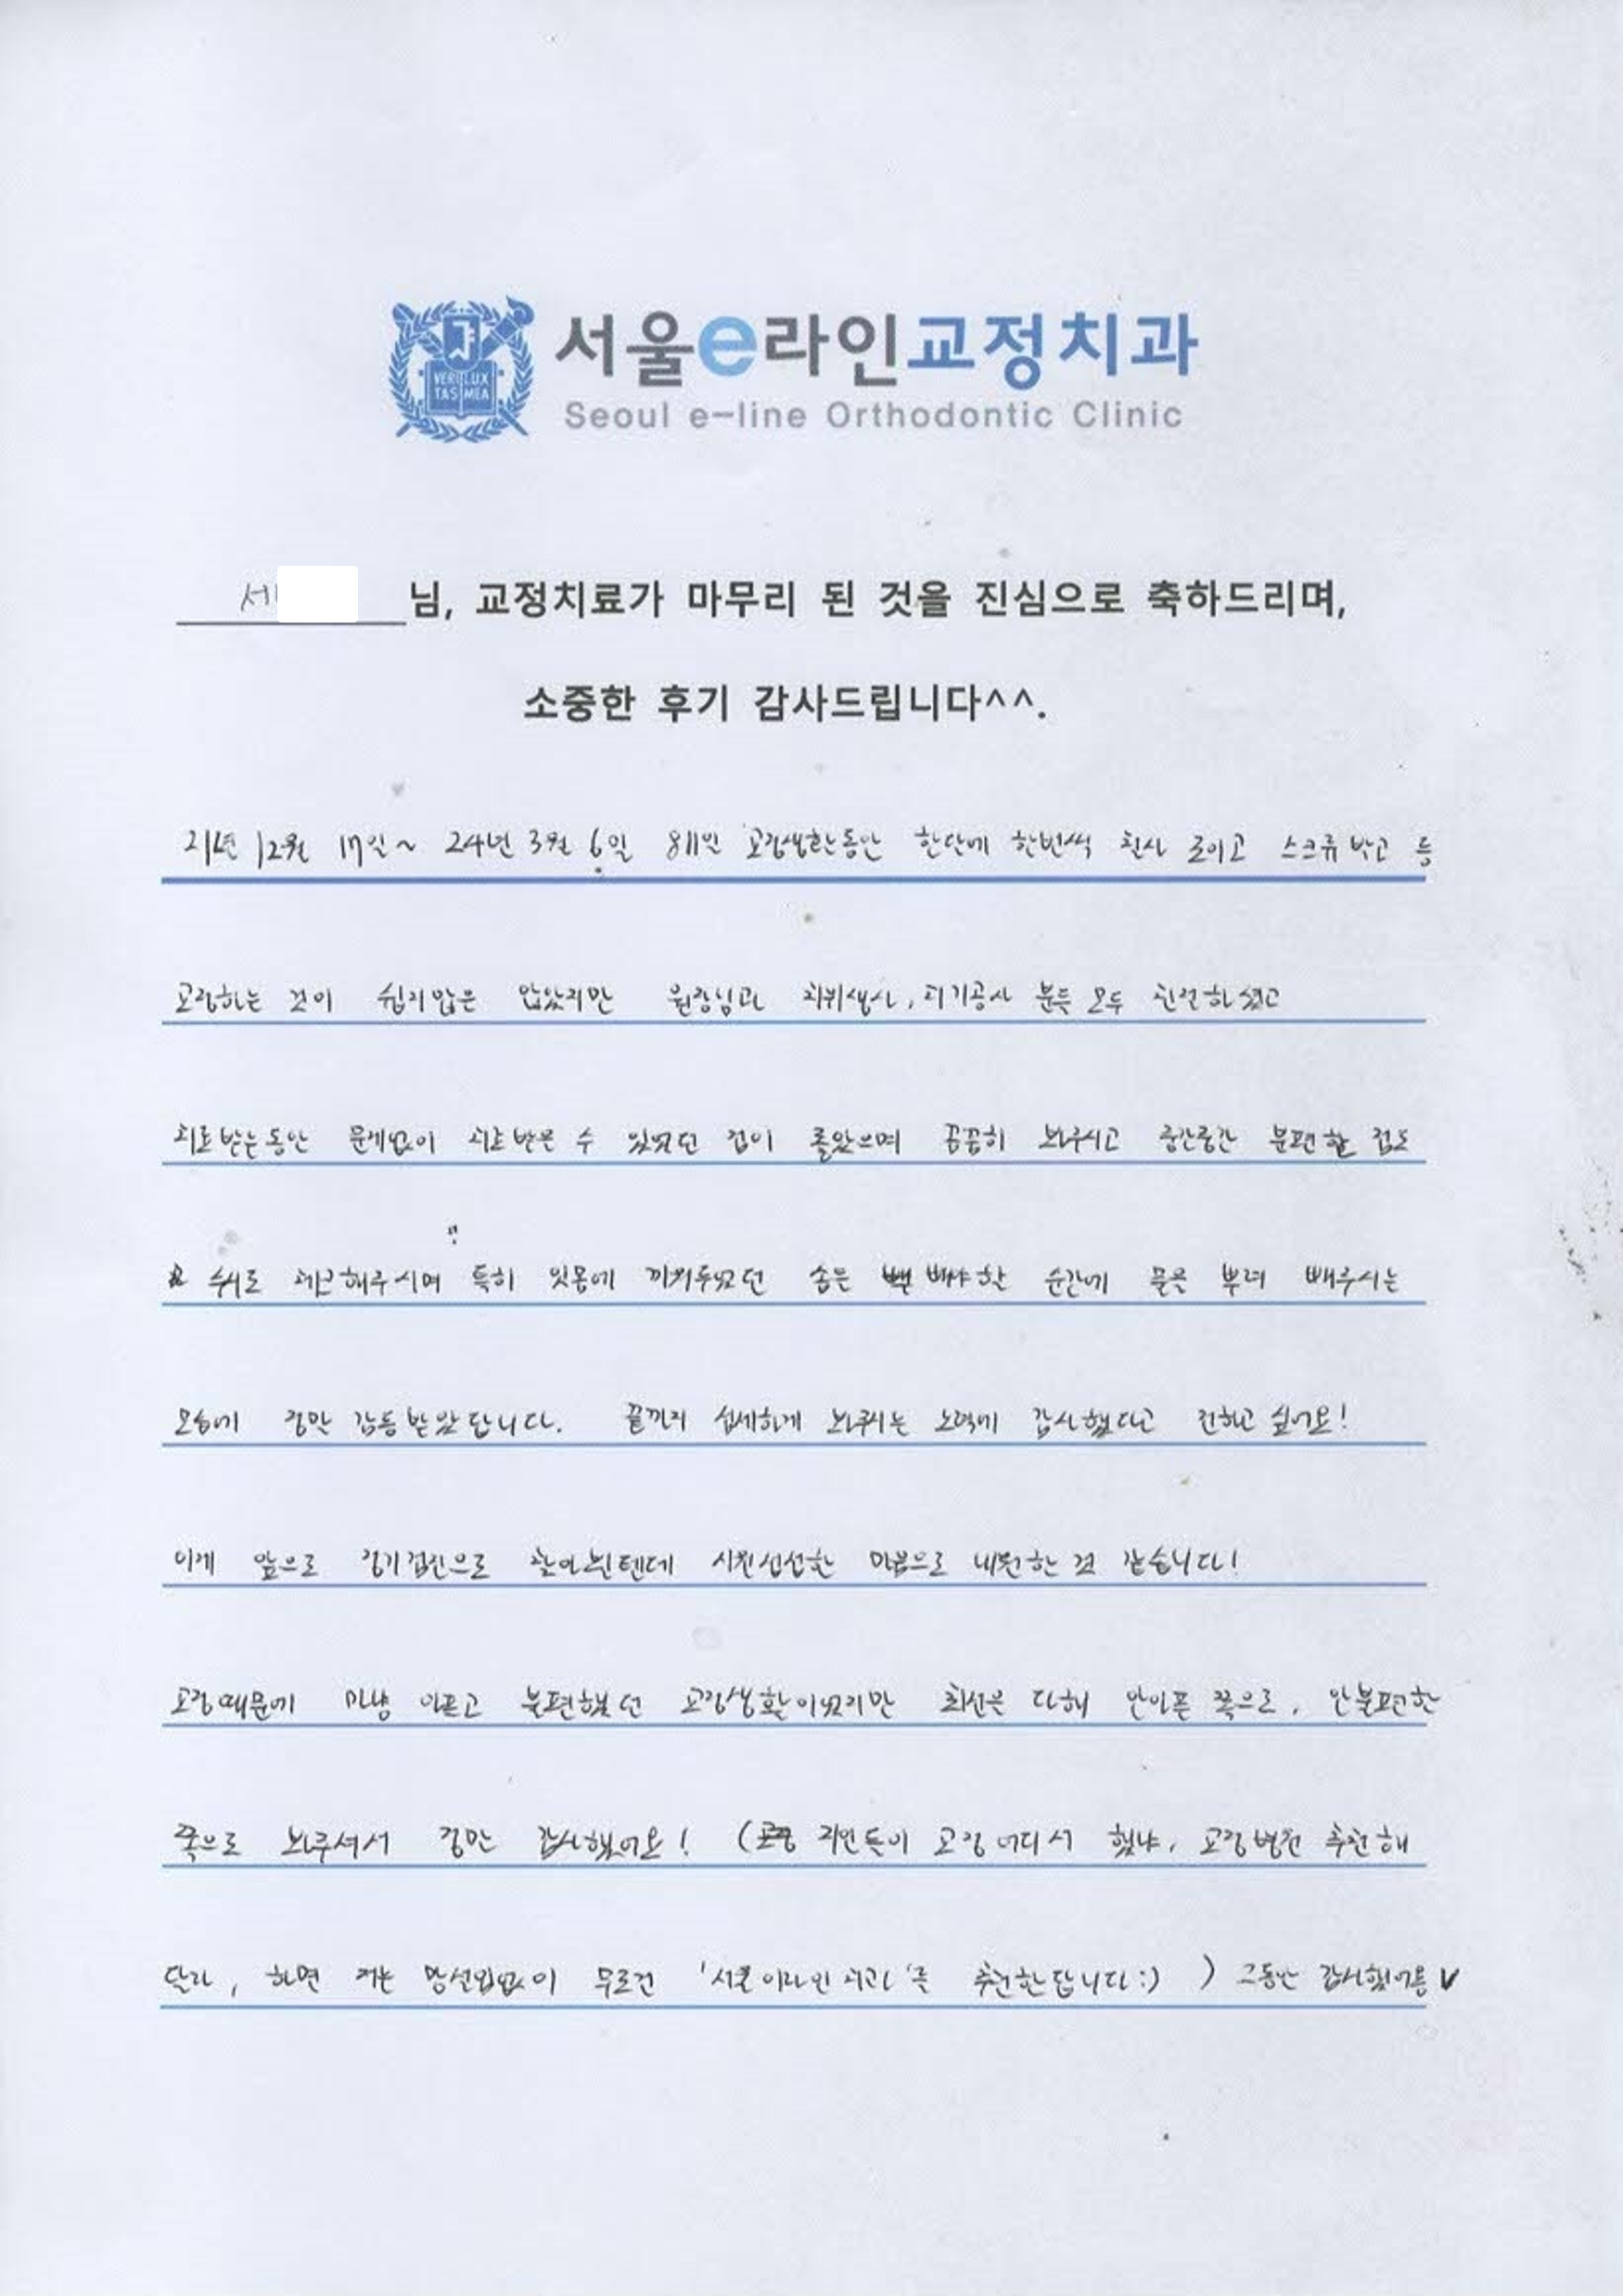 VERI LUX
TAS MEA
서울e라인교정치과
Seoul e-line Orthodontic Clinic
님, 교정치료가 마무리 된 것을 진심으로 축하드리며,
소중한 후기 감사드립니다^^.
21년 12월 17일 ~ 24년 3월 6일 811일 교정생활동안 한달에 한번씩 철사 조이고 스크류 박고 등
교정하는 것이 쉽지많은 않았지만 원장님과 치위생사, 치기공사 분들 모두 친절하셨고
치료받는동안 문제없이 치료받을 수 있었던 점이 좋았으며 꼼꼼히 봐주시고 중간중간 불편할 점도
수시로 체크해주시며 특히 잇몸에 끼워두었던 솜을 빼야할 순간에 물을 뿌려 빼주시는
모습에 정말 감동받았답니다. 끝까지 섬세하게 봐주시는 노력에 감사했다고 전하고 싶어요!
이제 앞으로 정기검진으로 찾아뵐텐데 시원섭섭한 마음으로 내원할 것 같습니다!
교정때문에 마냥 아프고 불편했던 교정생활이었지만 최선을 다해 안아픈 쪽으로, 안불편한
쪽으로 봐주셔서 정말 감사했어요! ( 지인들이 교정 어디서 했냐, 교정병원 추천해
달라, 하면 저는 망설임없이 무조건 '서울이라인치과'를 추천한답니다:) ) 그동안 감사했어용